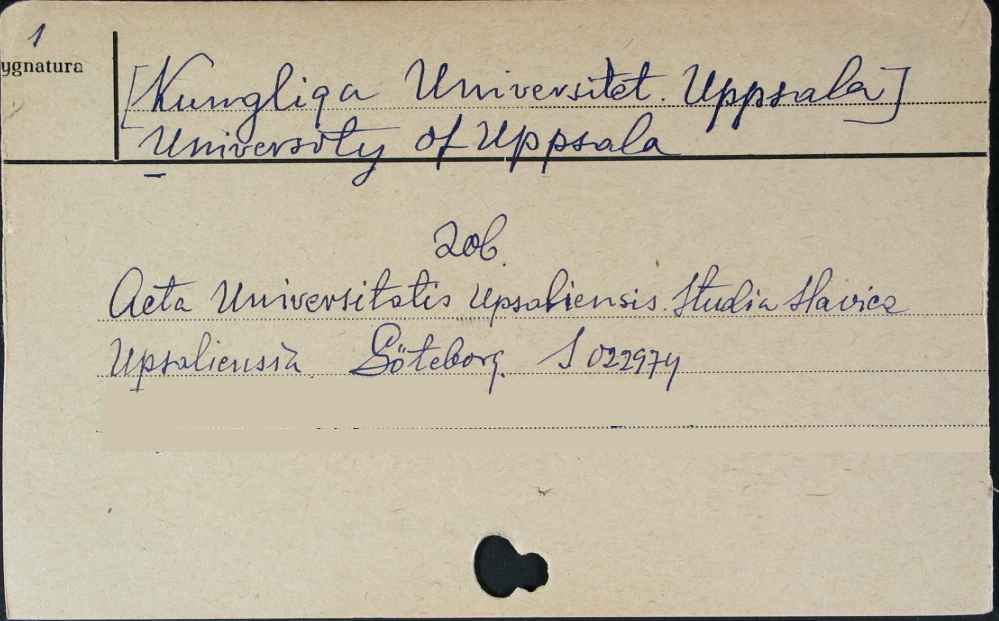 1
ygnatura
[Kungliga Universitet. Uppsala]
University of Uppsala
Zob.
Acta Universitatis Upsaliensis. Studia Slavica
Upsaliensia. Göteborg. S 022974